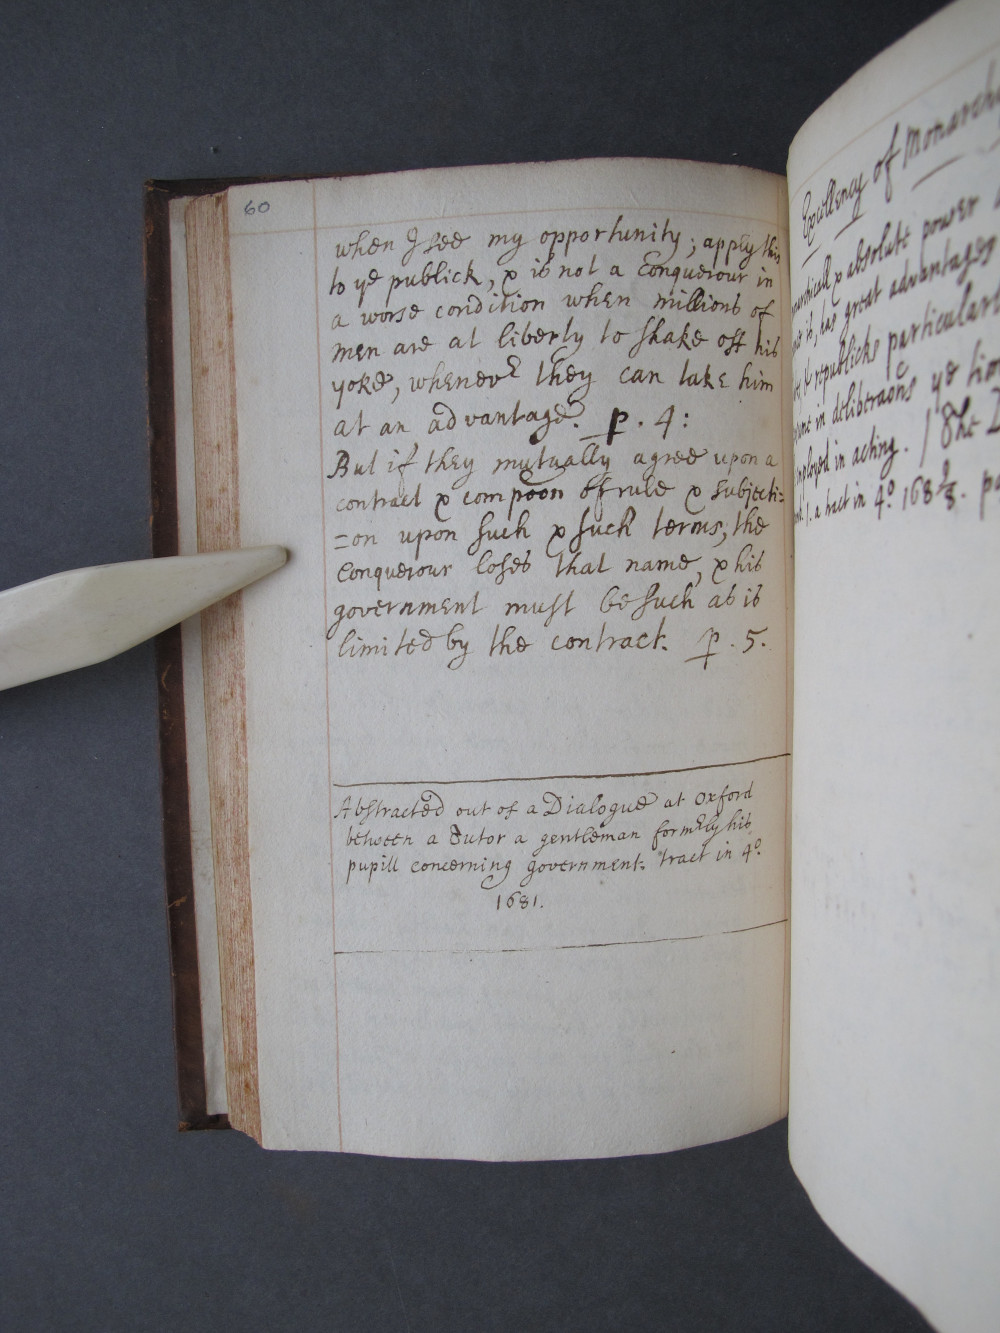 60
when I see my opportunity; apply this
to ye publick, & is not a Conquerour in
a worse condition when millions of
men are at liberty to shake off his
yoke, whenever they can take him
at an advantage. p. 4:
But if they mutually agree upon a
contract & compõon of rule & subjecti=
=on upon such & such terms, the
Conquerour loses that name, & his
government must be such as is
limited by the contract. p. 5.
Abstracted out of a Dialogue at Oxford
between a Tutor a gentleman formerly his
pupill concerning government. tract in 4o.
1681.
Excellency of Monarch
& absolute power
it, has great advantages
republicks particular
in deliberaõns ye
employed in acting. / The
/. a tract in 4o. 168 2/3. pa